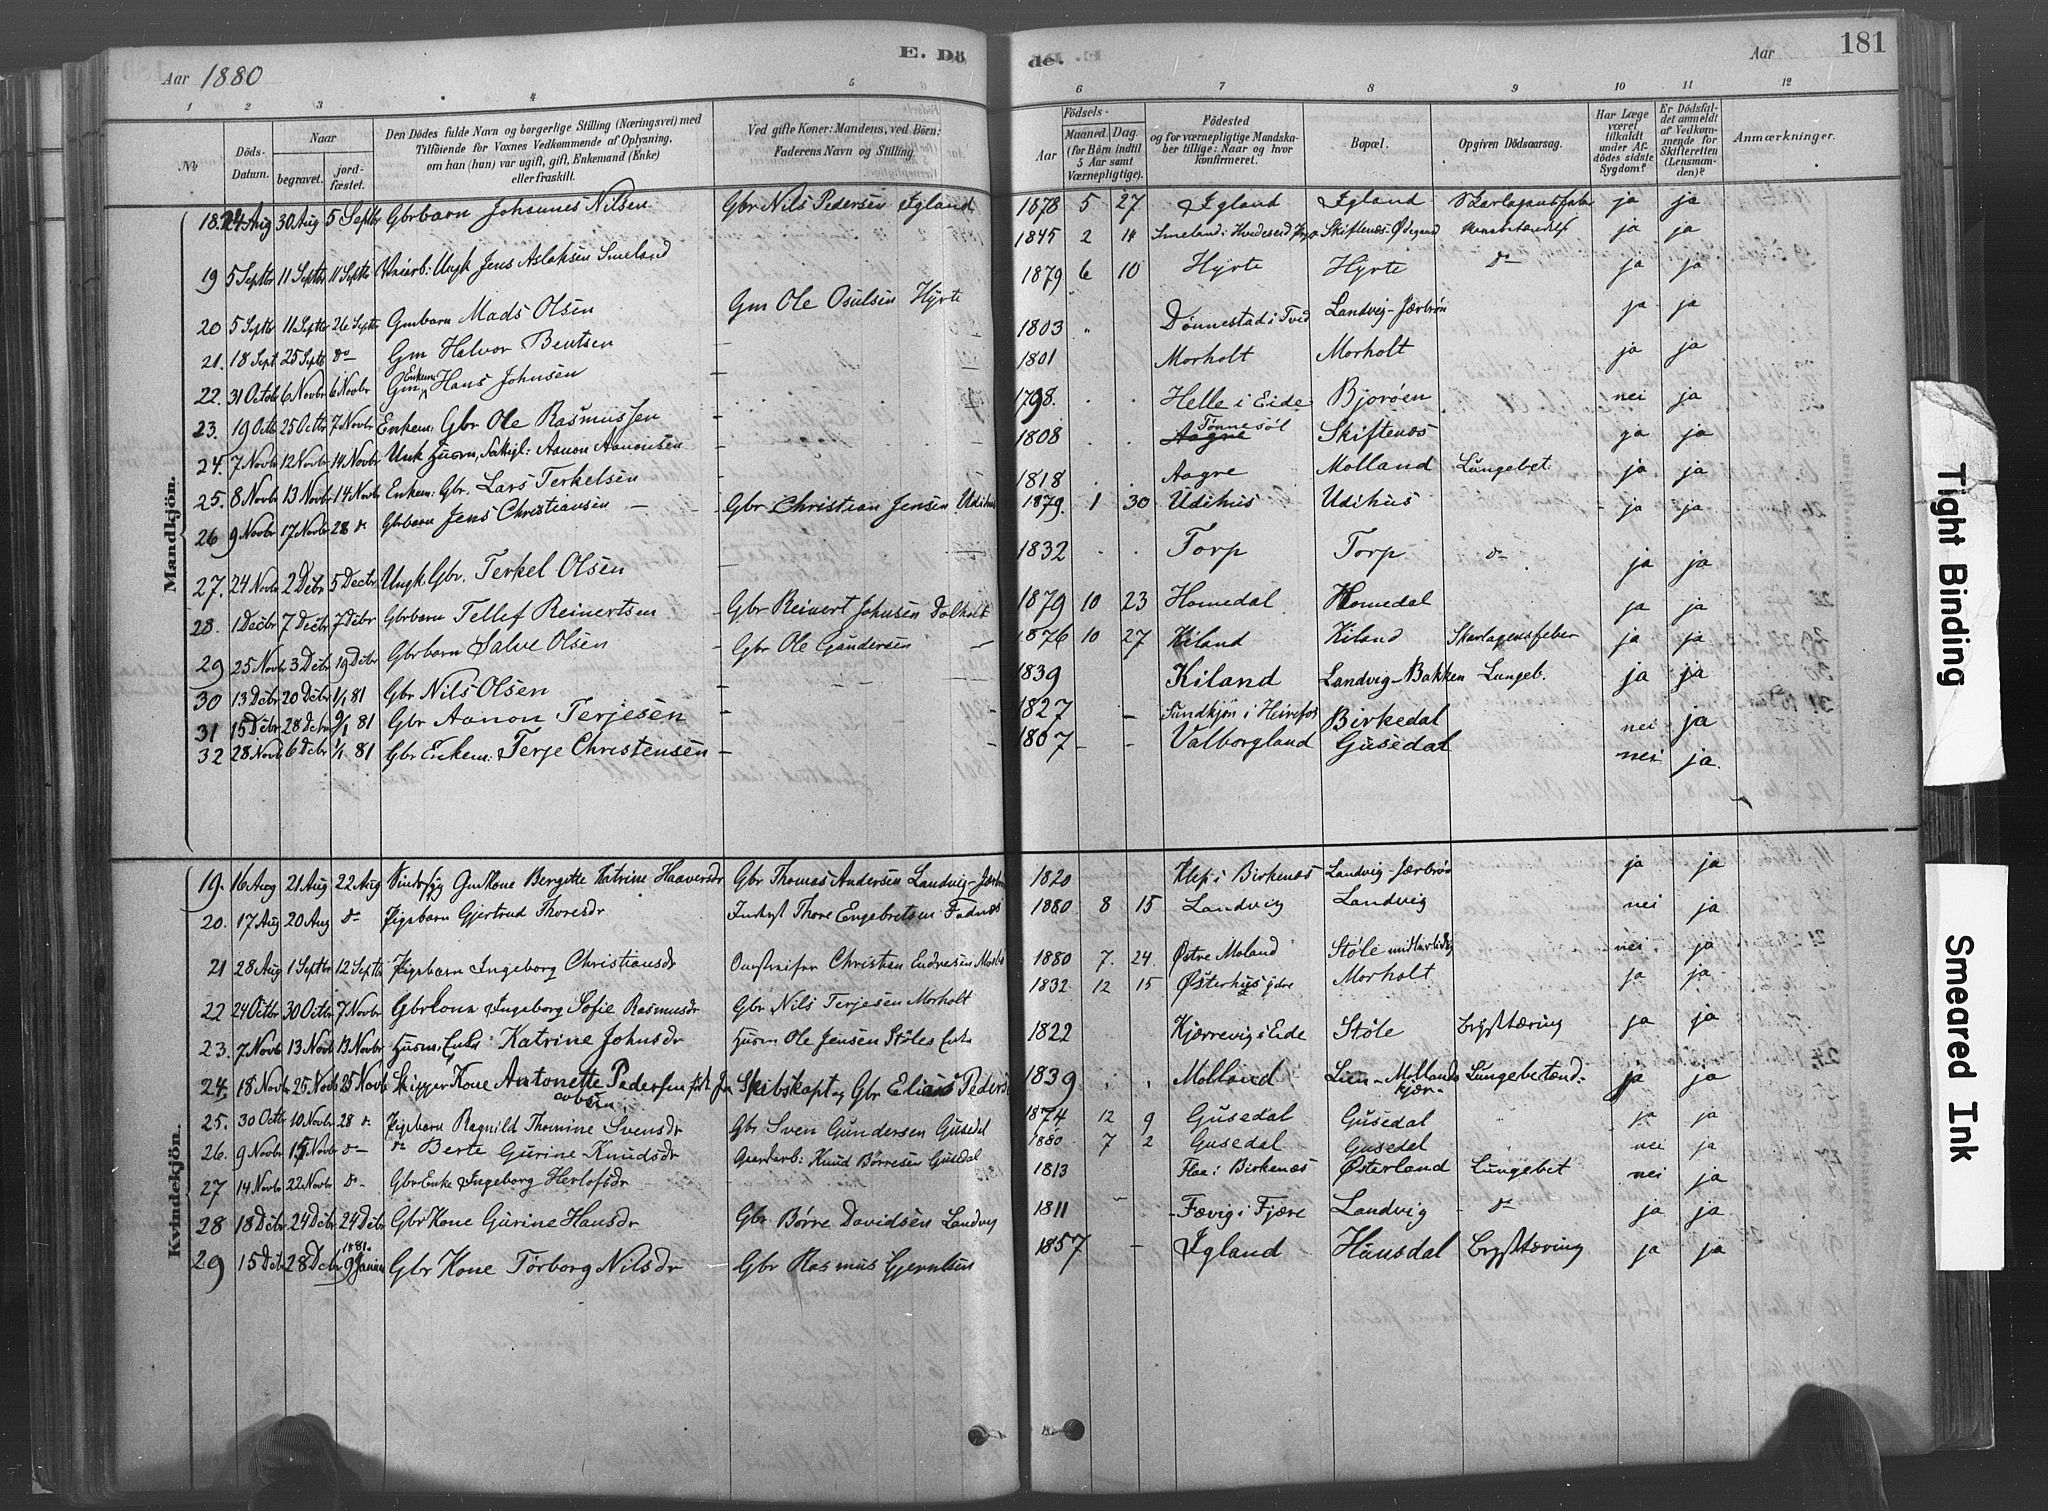 E. Dö de.
181
Aar 1880
Aar
1 2 3 4 5 6 7 8 9 10 11 12
№
Döds-Datum.
Naar begravet. jordfæstet.
Den Dödes fulde Navn og borgerlige Stilling (Næringsvei) med Tilföiende for Voxnes Vedkommende af Oplysning, om han (hun) var ugift, gift, Enkemand (Enke) eller fraskilt.
Ved gifte Koner: Mandens, ved Börn: Faderens Navn og Stilling.
Födsels-
Aar Maaned. Dag. (for Börn indtil 5 Aar samt Værnepligtige).
Födested og for værnepligtige Mandskaber tillige: Naar og hvor Konfirmeret.
Bopæl.
Opgiven Dödsaarsag.
Har Læge været tilkaldt under Afdödes sidste Sygdom?
Er Dödsfaldet anmeldt af Vedkommende for Skifteretten (Lensmanden)?
Anmærkninger.
Mandkjön.
18. 24 Aug 30 Aug 5 Septbr Gbrbarn Johannes Nilsen Gbr Nils Pedersen Igland 1878 5 27 Igland Igland Skarlagensfeber ja ja
19 5 Septbr 11 Septbr 11 Septbr Ungk Jens Aslaksen Smeland 1845 2 14 Smeland i Hvideseid Skiftenæs Ødegaard ja ja
20 5 Septbr 11 Septbr 26 Septbr Gmbarn Mads Olsen Gm Ole Osulsen Hyrte 1879 6 10 Hyrte Hyrte do ja ja
21. 18 Sept 25 Septb do Gm Halvor Bentsen 1803 " Dønnestad i Tveid Landvig-Jærbrøn ja ja
22. 31 Octbr 6 Novbr 6 Novbr Gm Enkem: Hans Johnsen 1801 Morholt Morholt ja ja
23. 19 Octb 25 Octbr 7 Novbr Enkem: Gbr Ole Rasmussen - 1798. Helle i Eide Bjorøen nei ja
24. 7 Novbr 12 Novbr 14 Novbr Unk Husm. Aanon Aanonsen - 1808 Aagre Tønnesøl Skiftenæs ja ja
25. 8 Novbr 13 Novbr 14 Novbr Enkem: Gbr. Lars Terkelsen - 1818 Aagre Molland Lungebet. ja ja
26 9 Novbr 17 Novbr 28 do Gbrbarn Jens Christiansen - Gbr Christian Jensen Udihus 1879. 1 30 Udihus Udihus - ja ja
27. 24 Novbr 2 Debr 5 Decbr Ungk. Gbr. Terkel Olsen 1832 Torp Torp do ja ja
28. 1 Decbr 7 Decbr 7 Debr Gbrbarn Tellef Reinertsen - Gbr Reinert Johnsen Dalholt 1879 10 23 Homedal Homedal ja ja
29 25 Novb 3 Debr 19 Debr Gbrbarn Salve Olsen - Gbr Ole Gundersen - 1876 10 27 Kiland Kiland Skarlagensfeber ja ja
30 13 Debr 20 Debr 1/1 81 Gbr Nils Olsen - 1839 Kiland Landvig-Bakken Lungeb. ja ja
31 15 Debr 28 Debr 9/1 81 Gbr Aanon Terjesen - 1827 - Sundkjøn i Heirefos Birkedal nei ja
32 28 Novb 6 Debr 1/1 81 Gbr Enkem: Terje Christensen - 1807 - - Valborgland Gusedal nei ja.
Kvindekjön.
19. 16 Aug 21 Aug 22 Aug Sindssyg Gbrkone Bergitte Katrine Haaversdr Gbr Thomas Andersen Landvig-Jærbrøn 1820 Klep i Birkenæs Landvig-Jærbrøn ja ja
20. 17 Aug 20 Aug do Pigebarn Gjertrud Thoresdr Thore Engebretsen Fadnæs 1880 8 15 Landvig Landvig nei ja
21 28 Aug 1 Septbr 12 Septb Pigebarn Ingeborg Christiansdr Christian Endresen 1880 7. 24. Østre Moland Støle midlertidig nei ja
22 24 Octbr 30 Octbr 7 Novbr Gbrkone Ingeborg Sofie Rasmusdr Gbr Nils Terjesen Morholt 1832 12 15 Østerhus ydre Morholt ja ja
23. 7 Novb 13 Novb 13 Novbr Husm: Enke: Katrine Johnsdr Husm Ole Jensen Støles Enke 1822 Kjærrevig i Eide Støle Brysttæring ja ja
24. 18 Novbr 25 Novb 25 Novb Skipper Kone Antonette Pedersen født Jacobsen Skibskapt og Gbr Elias Pedersen 1839 . . Molland Lien-Mollands kjær- Lungebetænd: ja ja
25. 30 Octbr 10 Novbr 28 do Pigebarn Ragnild Thomine Svensdr Gbr Sven Gundersen Gusedal 1874 12 9 Gusedal Gusedal " ja ja
26. 9 Novbr 15 Novbr do do Berte Gurine Knudsdr Gaardarb: Knud Børresen Gusedal 1880 7 2 Gusedal Gusedal nei ja
27 14 Novbr 22 Novbr do - Gbr Enke Ingeborg Herlofsdr - 1813 Flae i Birkenæs Østerland Lungebet nei ja
28 18 Debr 24 Debr 24 Debr Gbr Kone Gurine Hansdr Gbr Børre Davidsen Landvig 1811 - Fævig i Fjære Landvig - do - ja ja
29 15 Debr 28 Debr 1881. 9 Januar Gbr Kone Torborg Nilsdr Gbr Rasmus Gjernhus 1857 - Igland Hausdal Brysttæring ja ja
Tight Binding
Smeared Ink